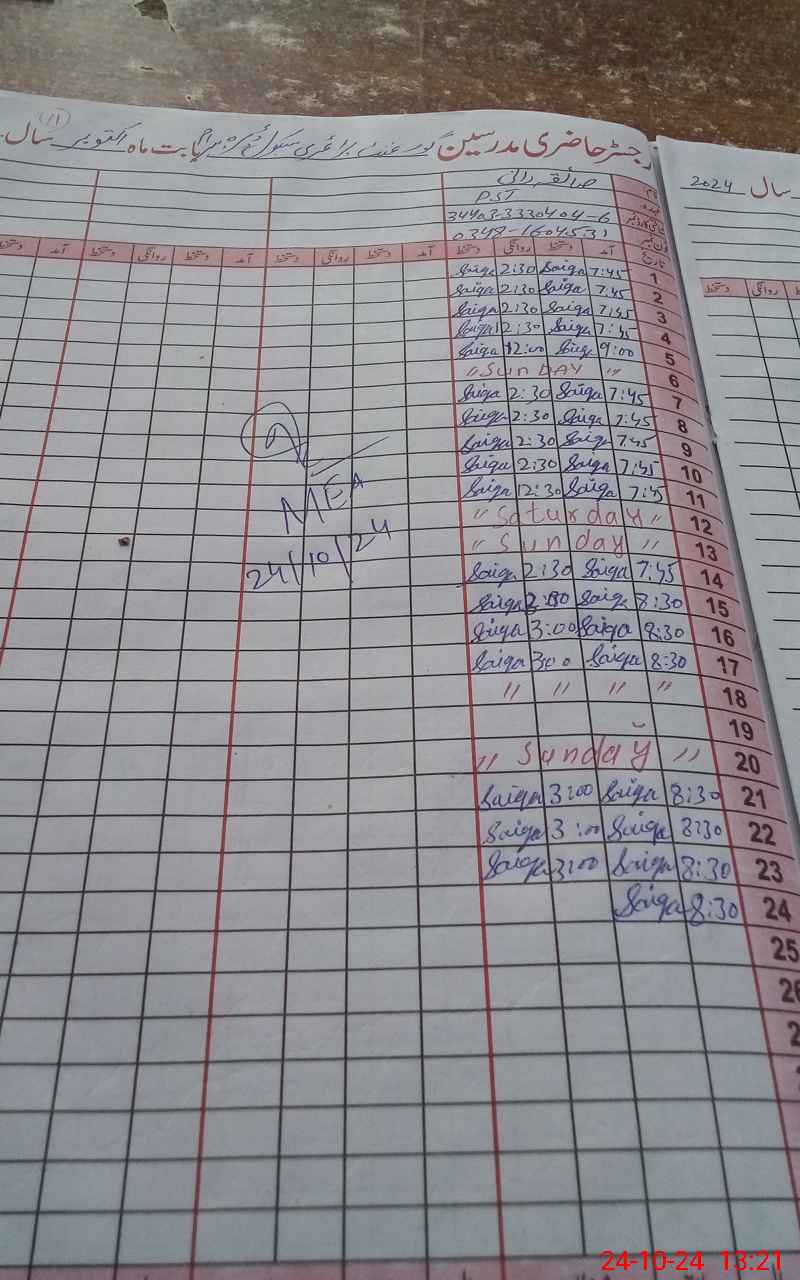 رجسٹر حاضری مدرسین گورنمنٹ پرائمری سکول بابت ماہ اکتوبر سال
سال 2024
(11)
نام صائقہ رانی
عہدہ PST
34403-3330404-6
0348-1604531
تاریخ آمد دستخط روانگی دستخط آمد دستخط روانگی دستخط آمد دستخط روانگی دستخط آمد
روانگی دستخط
1 7:45 Saiqa 2:30 Saiqa
2 7:45 Saiqa 2:30 Saiqa
3 7:45 Saiqa 2:30 Saiqa
4 7:45 Saiqa 12:30 Saiqa
5 9:00 Saiqa 12:00 Saiqa
6 " SunDAY "
7 7:45 Saiqa 2:30 Saiqa
8 7:45 Saiqa 2:30 Saiqa
9 7:45 Saiqa 2:30 Saiqa
10 7:45 Saiqa 2:30 Saiqa
11 7:45 Saiqa 12:30 Saiqa
12 " Saturday "
13 " Sunday "
14 7:45 Saiqa 2:30 Saiqa
15 8:30 Saiqa 2:30 Saiqa
16 8:30 Saiqa 3:00 Saiqa
17 8:30 Saiqa 300 Saiqa
18 " " " "
19
20 " Sunday "
21 8:30 Saiqa 3:00 Saiqa
22 8:30 Saiqa 3:00 Saiqa
23 8:30 Saiqa 3:00 Saiqa
24 8:30 Saiqa
25
MEA
24/10/24
24-10-24 13:21